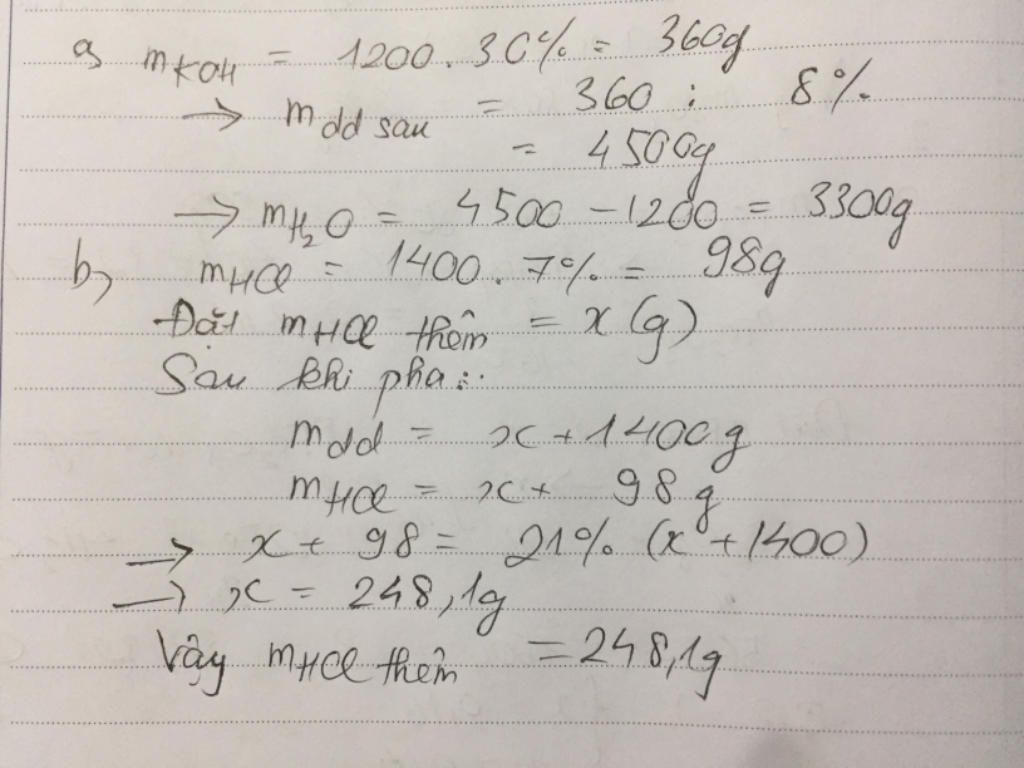 a, mKOH = 1200.30% = 360g
→ mdd sau = 360 : 8%
= 4500g
→ mH₂O = 4500 - 1200 = 3300g
b, mHCl = 1400.7% = 98g
Đặt mHCl thêm = x (g)
Sau khi pha:
mdd = x + 1400g
mHCl = x + 98g
→ x + 98 = 21% (x + 1400)
→ x = 248,1g
Vậy mHCl thêm = 248,1g